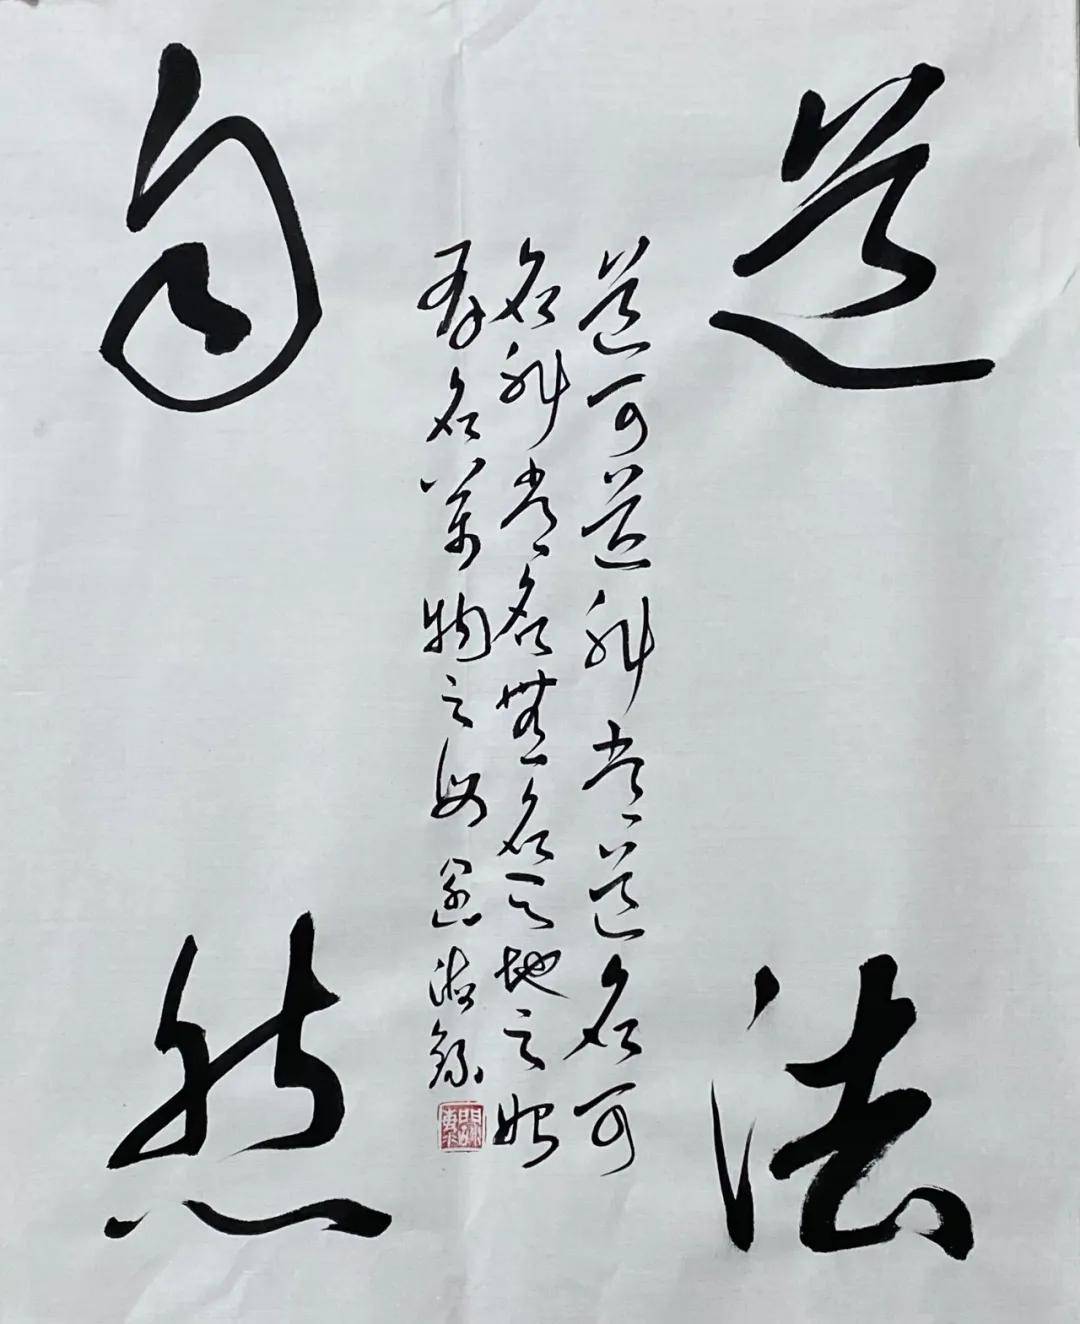 道法
自然
道可道非常道名可
名非常名無名天地之始
有名萬物之母